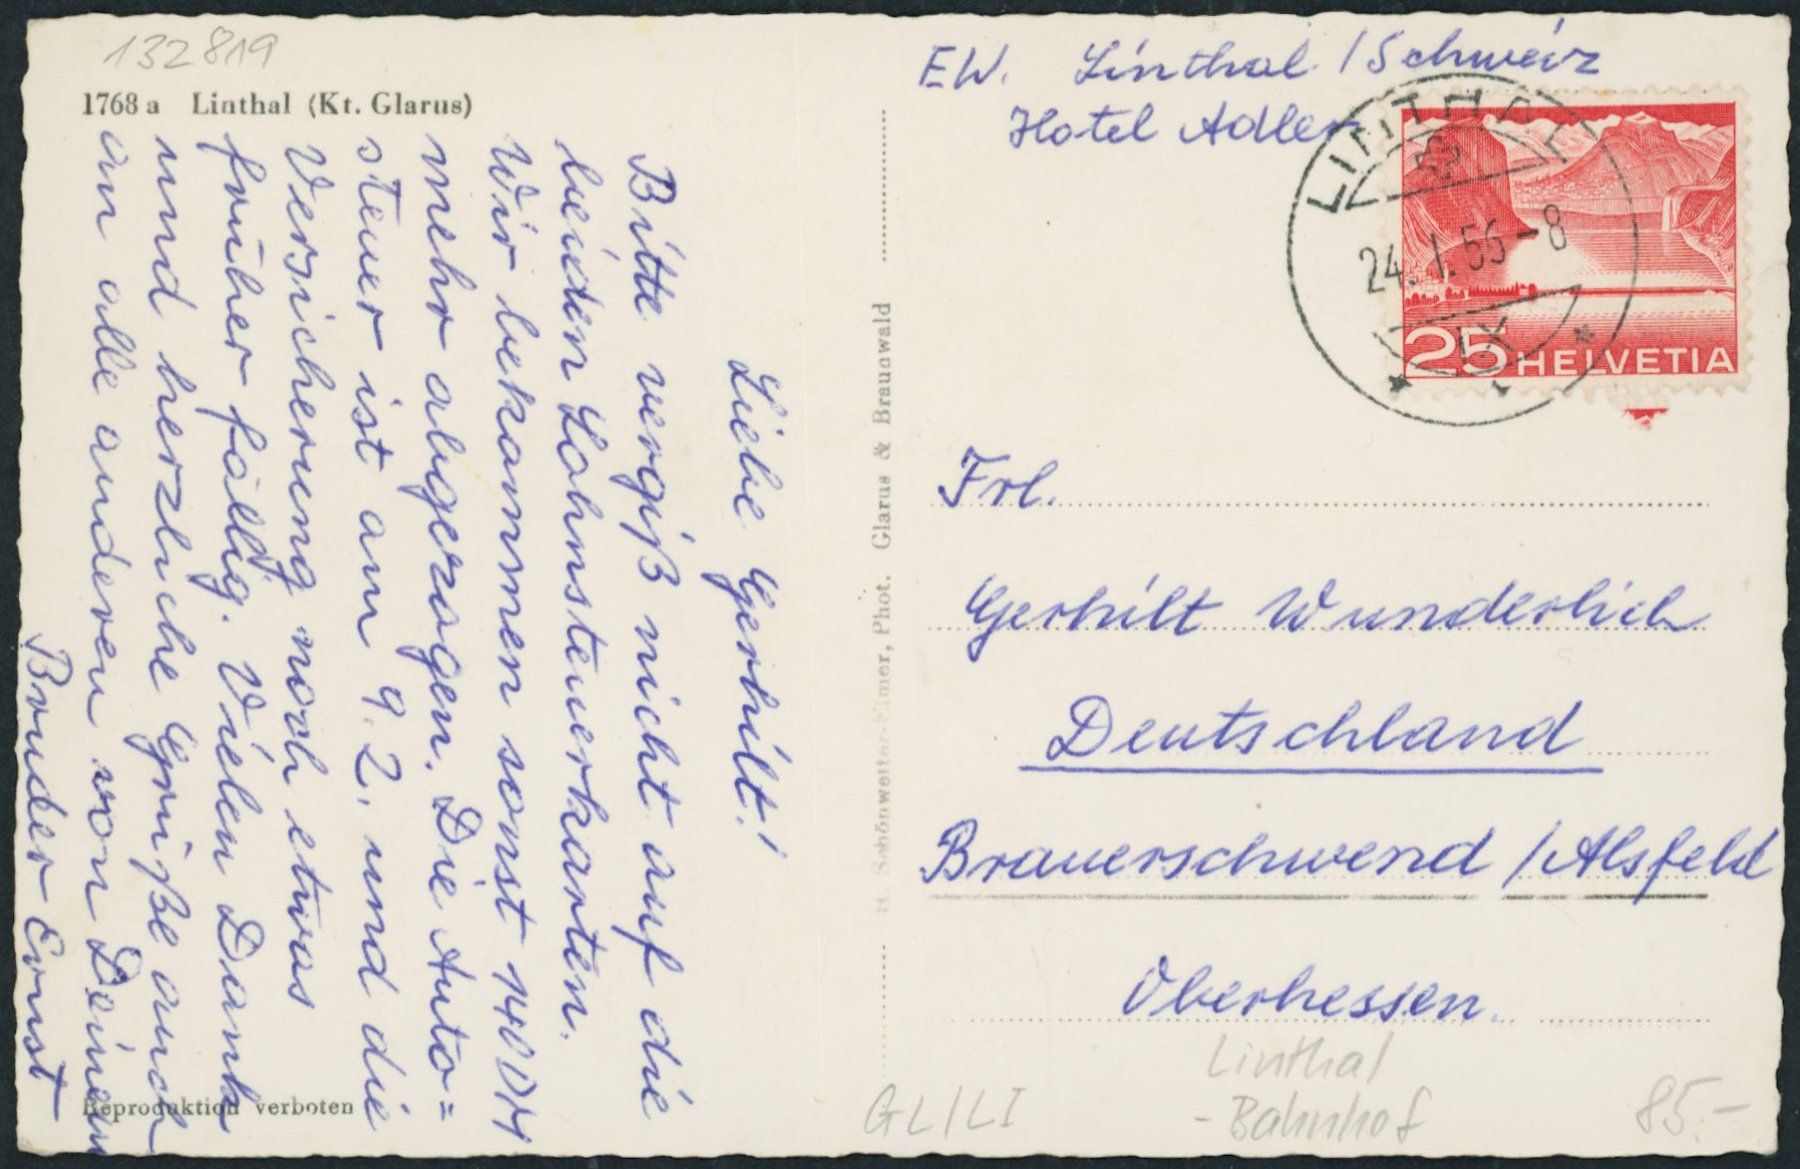 132819
1768 a Linthal (Kt. Glarus)
Liebe Gerhilt!
Bitte vergiß nicht auf die
beiden Lohnsteuerkarten.
Wir bekommen sonst 140 DM
mehr abgezogen. Die Auto=
steuer ist am 9.2. und die
Versicherung noch etwas
früher fällig. Vielen Dank
und herzliche Grüße auch
an alle anderen von Deinem
Bruder Ernst
Reproduktion verboten
H. Schönwetter-Elmer, Phot. Glarus & Braunwald
EW. Linthal / Schweiz
Hotel Adler
LINTHAL
24. I. 56-8
25 HELVETIA
Frl.
Gerhilt Wunderlich
Deutschland
Brauerschwend / Alsfeld
Oberhessen.
Linthal
- Bahnhof
GL/LI
85.-